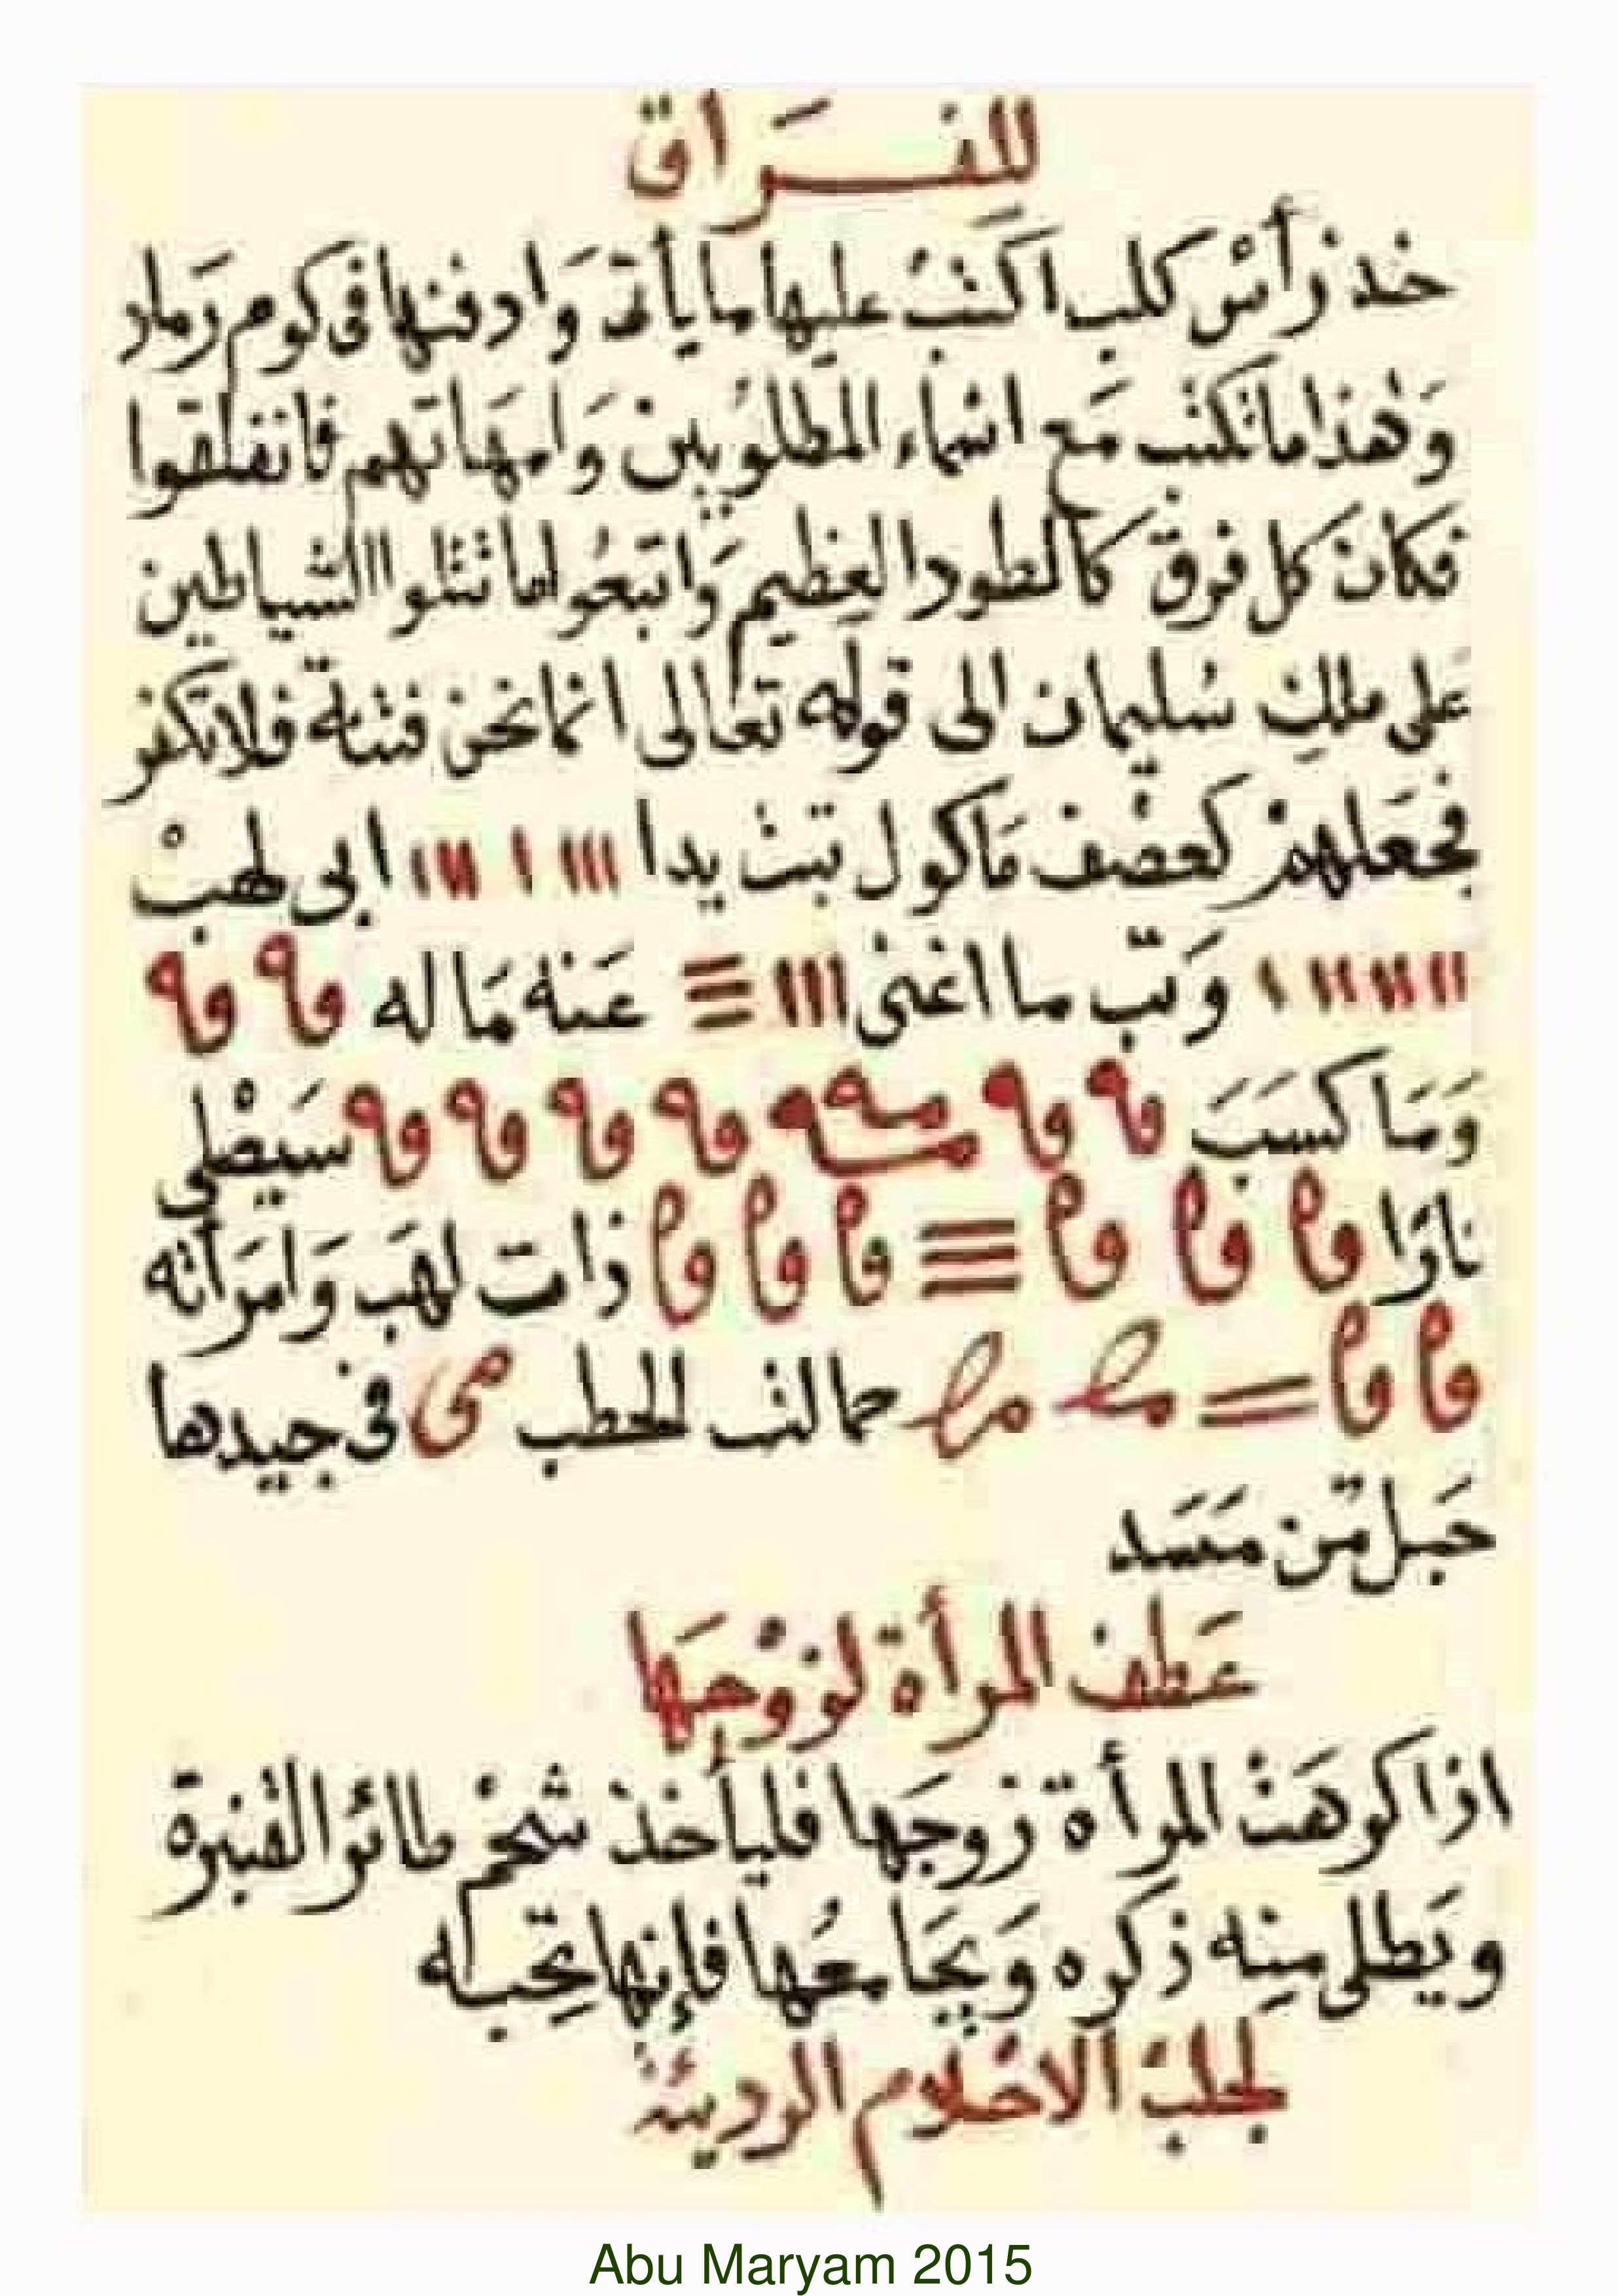 للفراق
خذ رأس كلب اكتب عليها ما يأتى وادفنها فى كوم رماد
وهذا ما تكتب مع اسماء المطلوبين وامهاتهم فانفلقوا
فكان كل فرق كالطود العظيم واتبعوا ما تتلوا الشياطين
على ملك سليمان الى قوله تعالى انما نحن فتنة فلا تكفر
فجعلهم كعصف مأكول تبت يدا ااا ا ااا ابى لهب
اا اا اا ا وتب ما اغنى ااا عنه ماله
وما كسب سيصلى
نارا ذات لهب وامرأته
حمالت الحطب فى جيدها
حبل من مسد
عطف المرأة لزوجها
اذا كرهت المرأة زوجها فليأخذ شحم طائر القنبرة
ويطلى منه ذكره ويجامعها فإنها تحبه
لجلب الاحلام الرديئة
Abu Maryam 2015